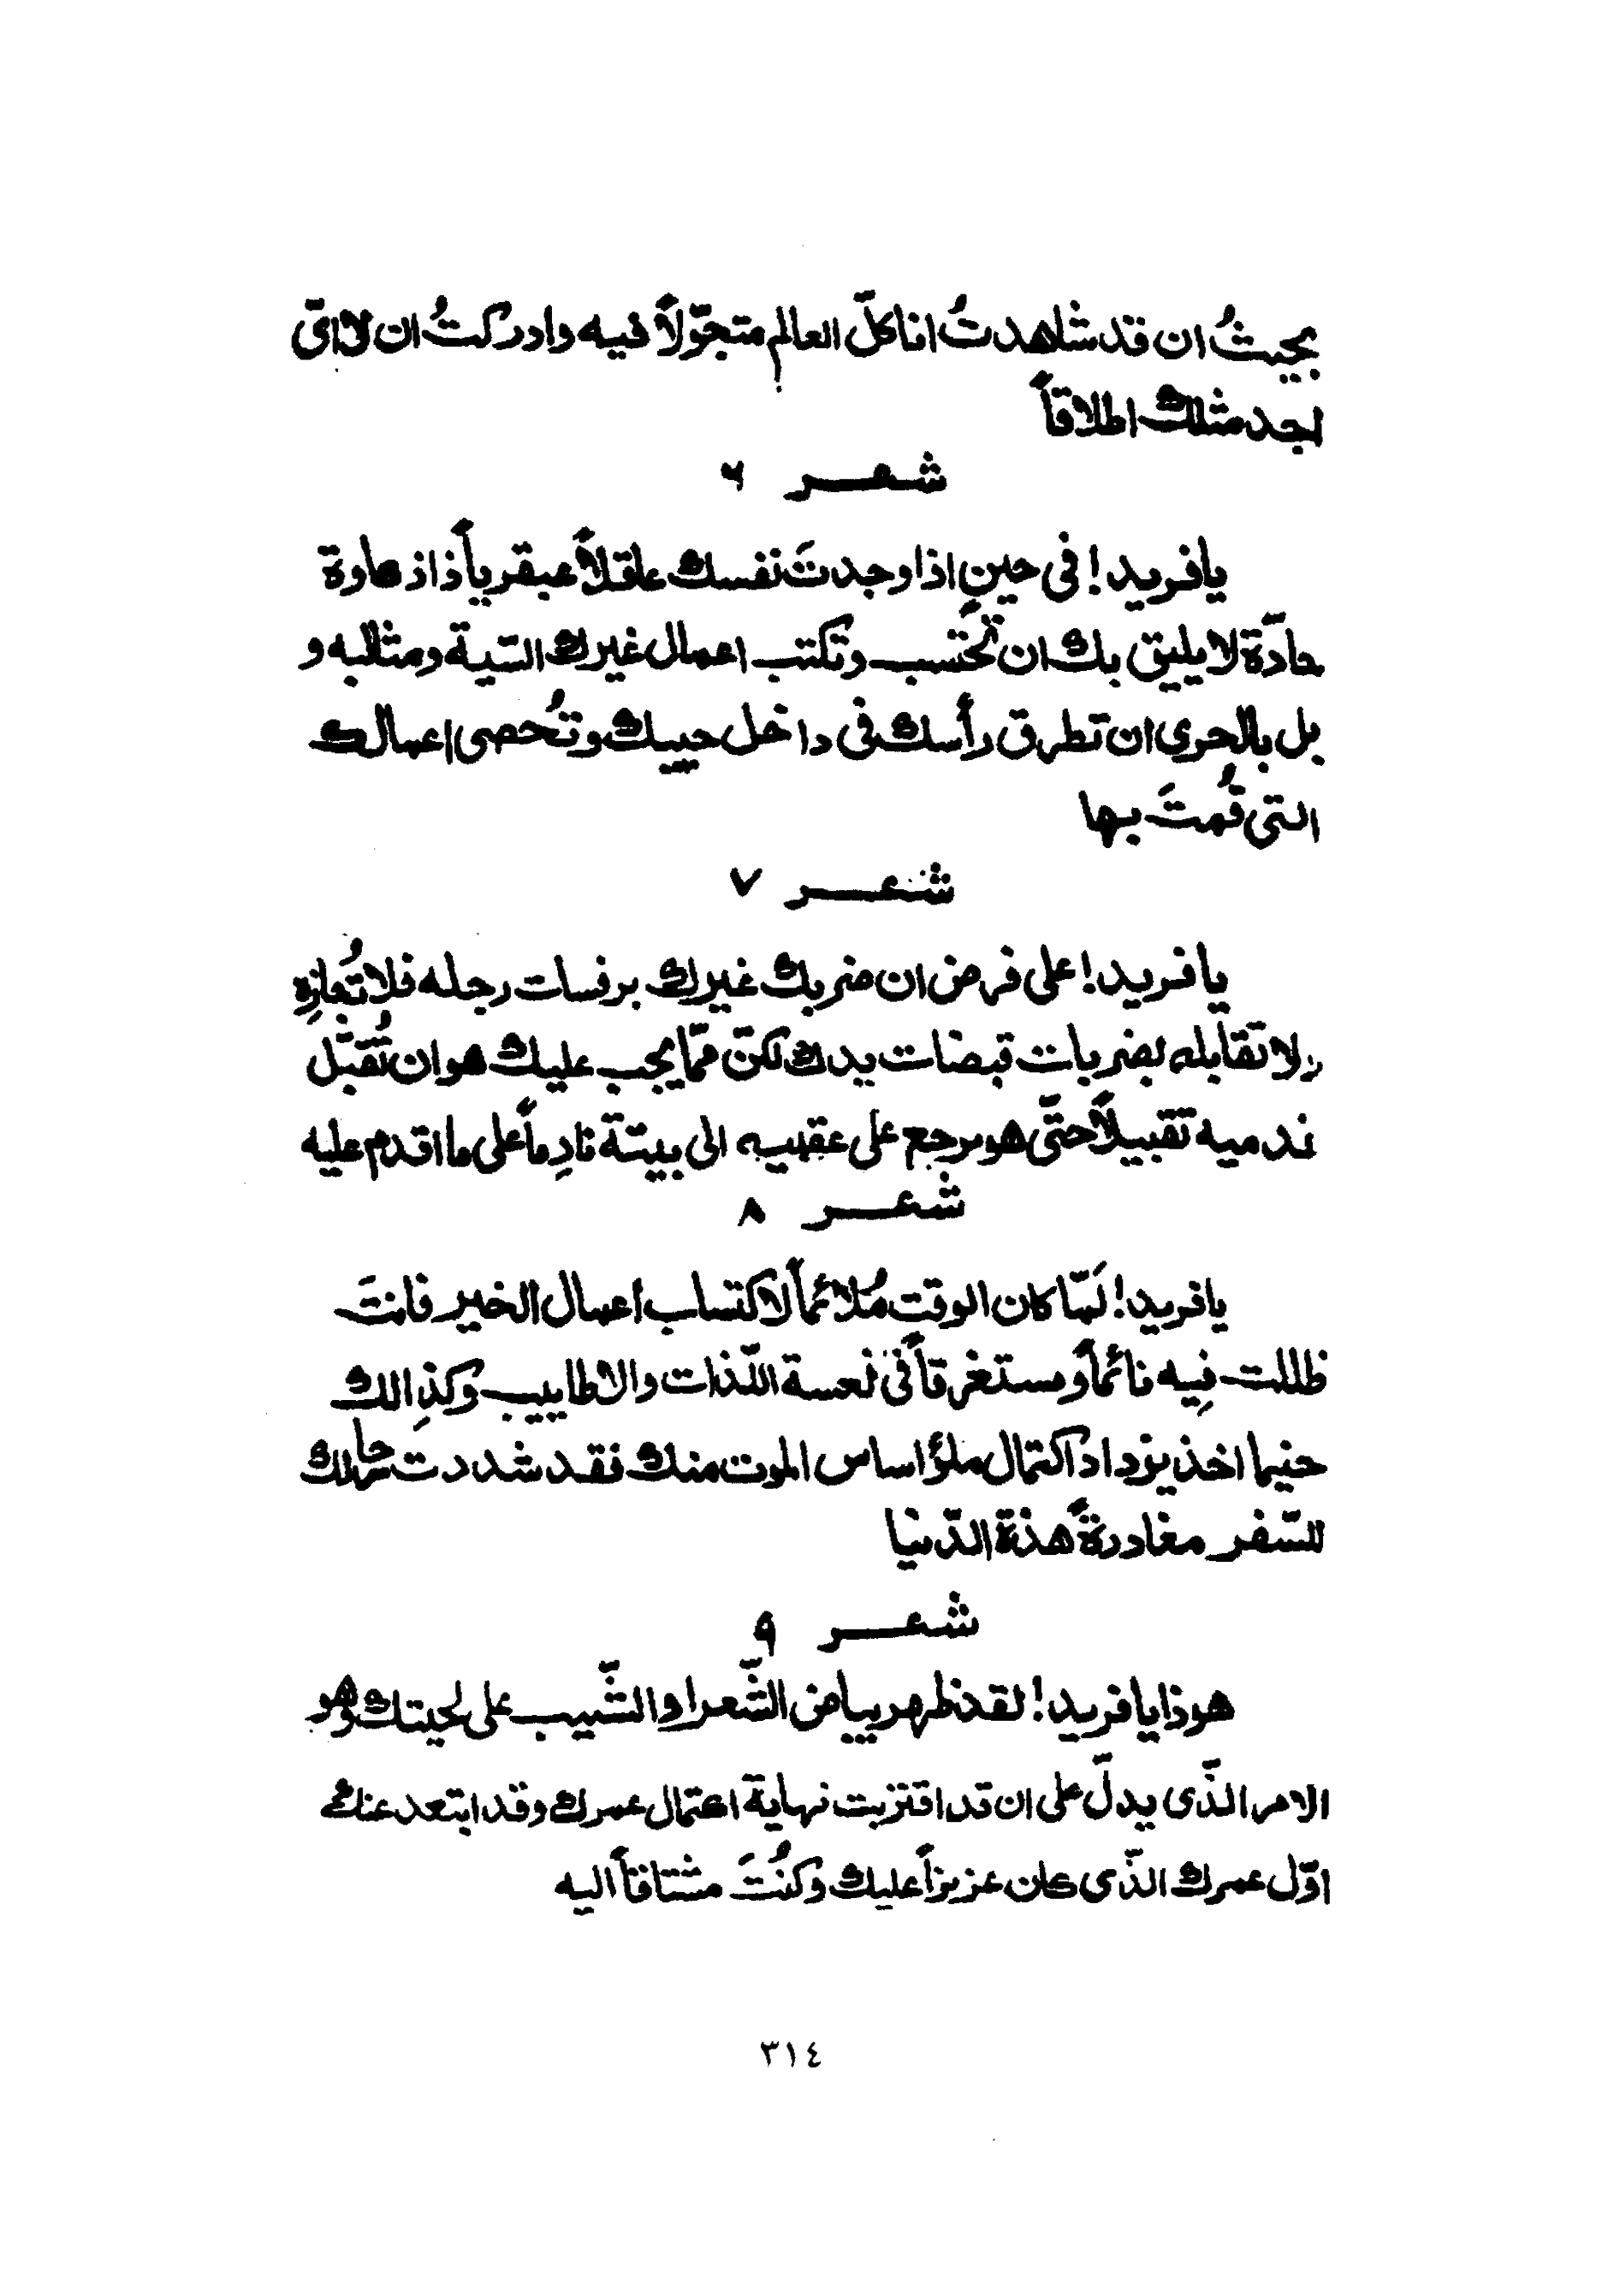 بحيثُ ان قد شاهدتُ انا كلّ العالم متجوّلاً فيه وادركتُ ان لا انى
اجد مثلك اطلاقاً
شعر ٦
يا فريد! فى حينٍ اذا وجدتَ نفسك عاقلاً عبقرياً ذا ذهاوة
حادّة لا يليق بك ان تحتسب وتكتب اعمال غيرك السّية ومثالبه و
بل بالحرى ان تطرق رأسك فى داخل جيبك وتُحصى اعمالك
التى قُمتَ بها
شعر ٧
يا فريد! على فرض ان ضربك غيرك برفسات رجله فلا تُجازِه
ولا تقابله بضربات قبضات يدك لكنّ ممّا يجب عليك هو ان تُقبّل
ندميه تقبيلاً حتّى هو يرجع على عقبيه الى بيتة نادِماً على ما اقدم عليه
شعر ٨
يا فريد! لَمّا كان الوقت مُلائماً لاكتساب اعمال الخير فانتَ
ظللت فِيه نائماً ومستغرقاً فى نعسة اللّذات والاطاييب وكذٰالك
حنيما اخذ يزداد اكتمال ملؤ اساس الموت منك فقد شددت حالك
للسّفر مغادرةً هذة الدّنيا
شعر ٩
هوذا يا فريد! لقد ظهر بياض الشّعر او الشّيب على لحيتك وهو
الامر الذّى يدلّ على ان قد اقتربت نهاية اكتمال عمرك وقد ابتعد عنك
اوّل عمرك الذّى كان عزيزاً عليك وكُنتَ مشتاقاً اليه
٣١٤